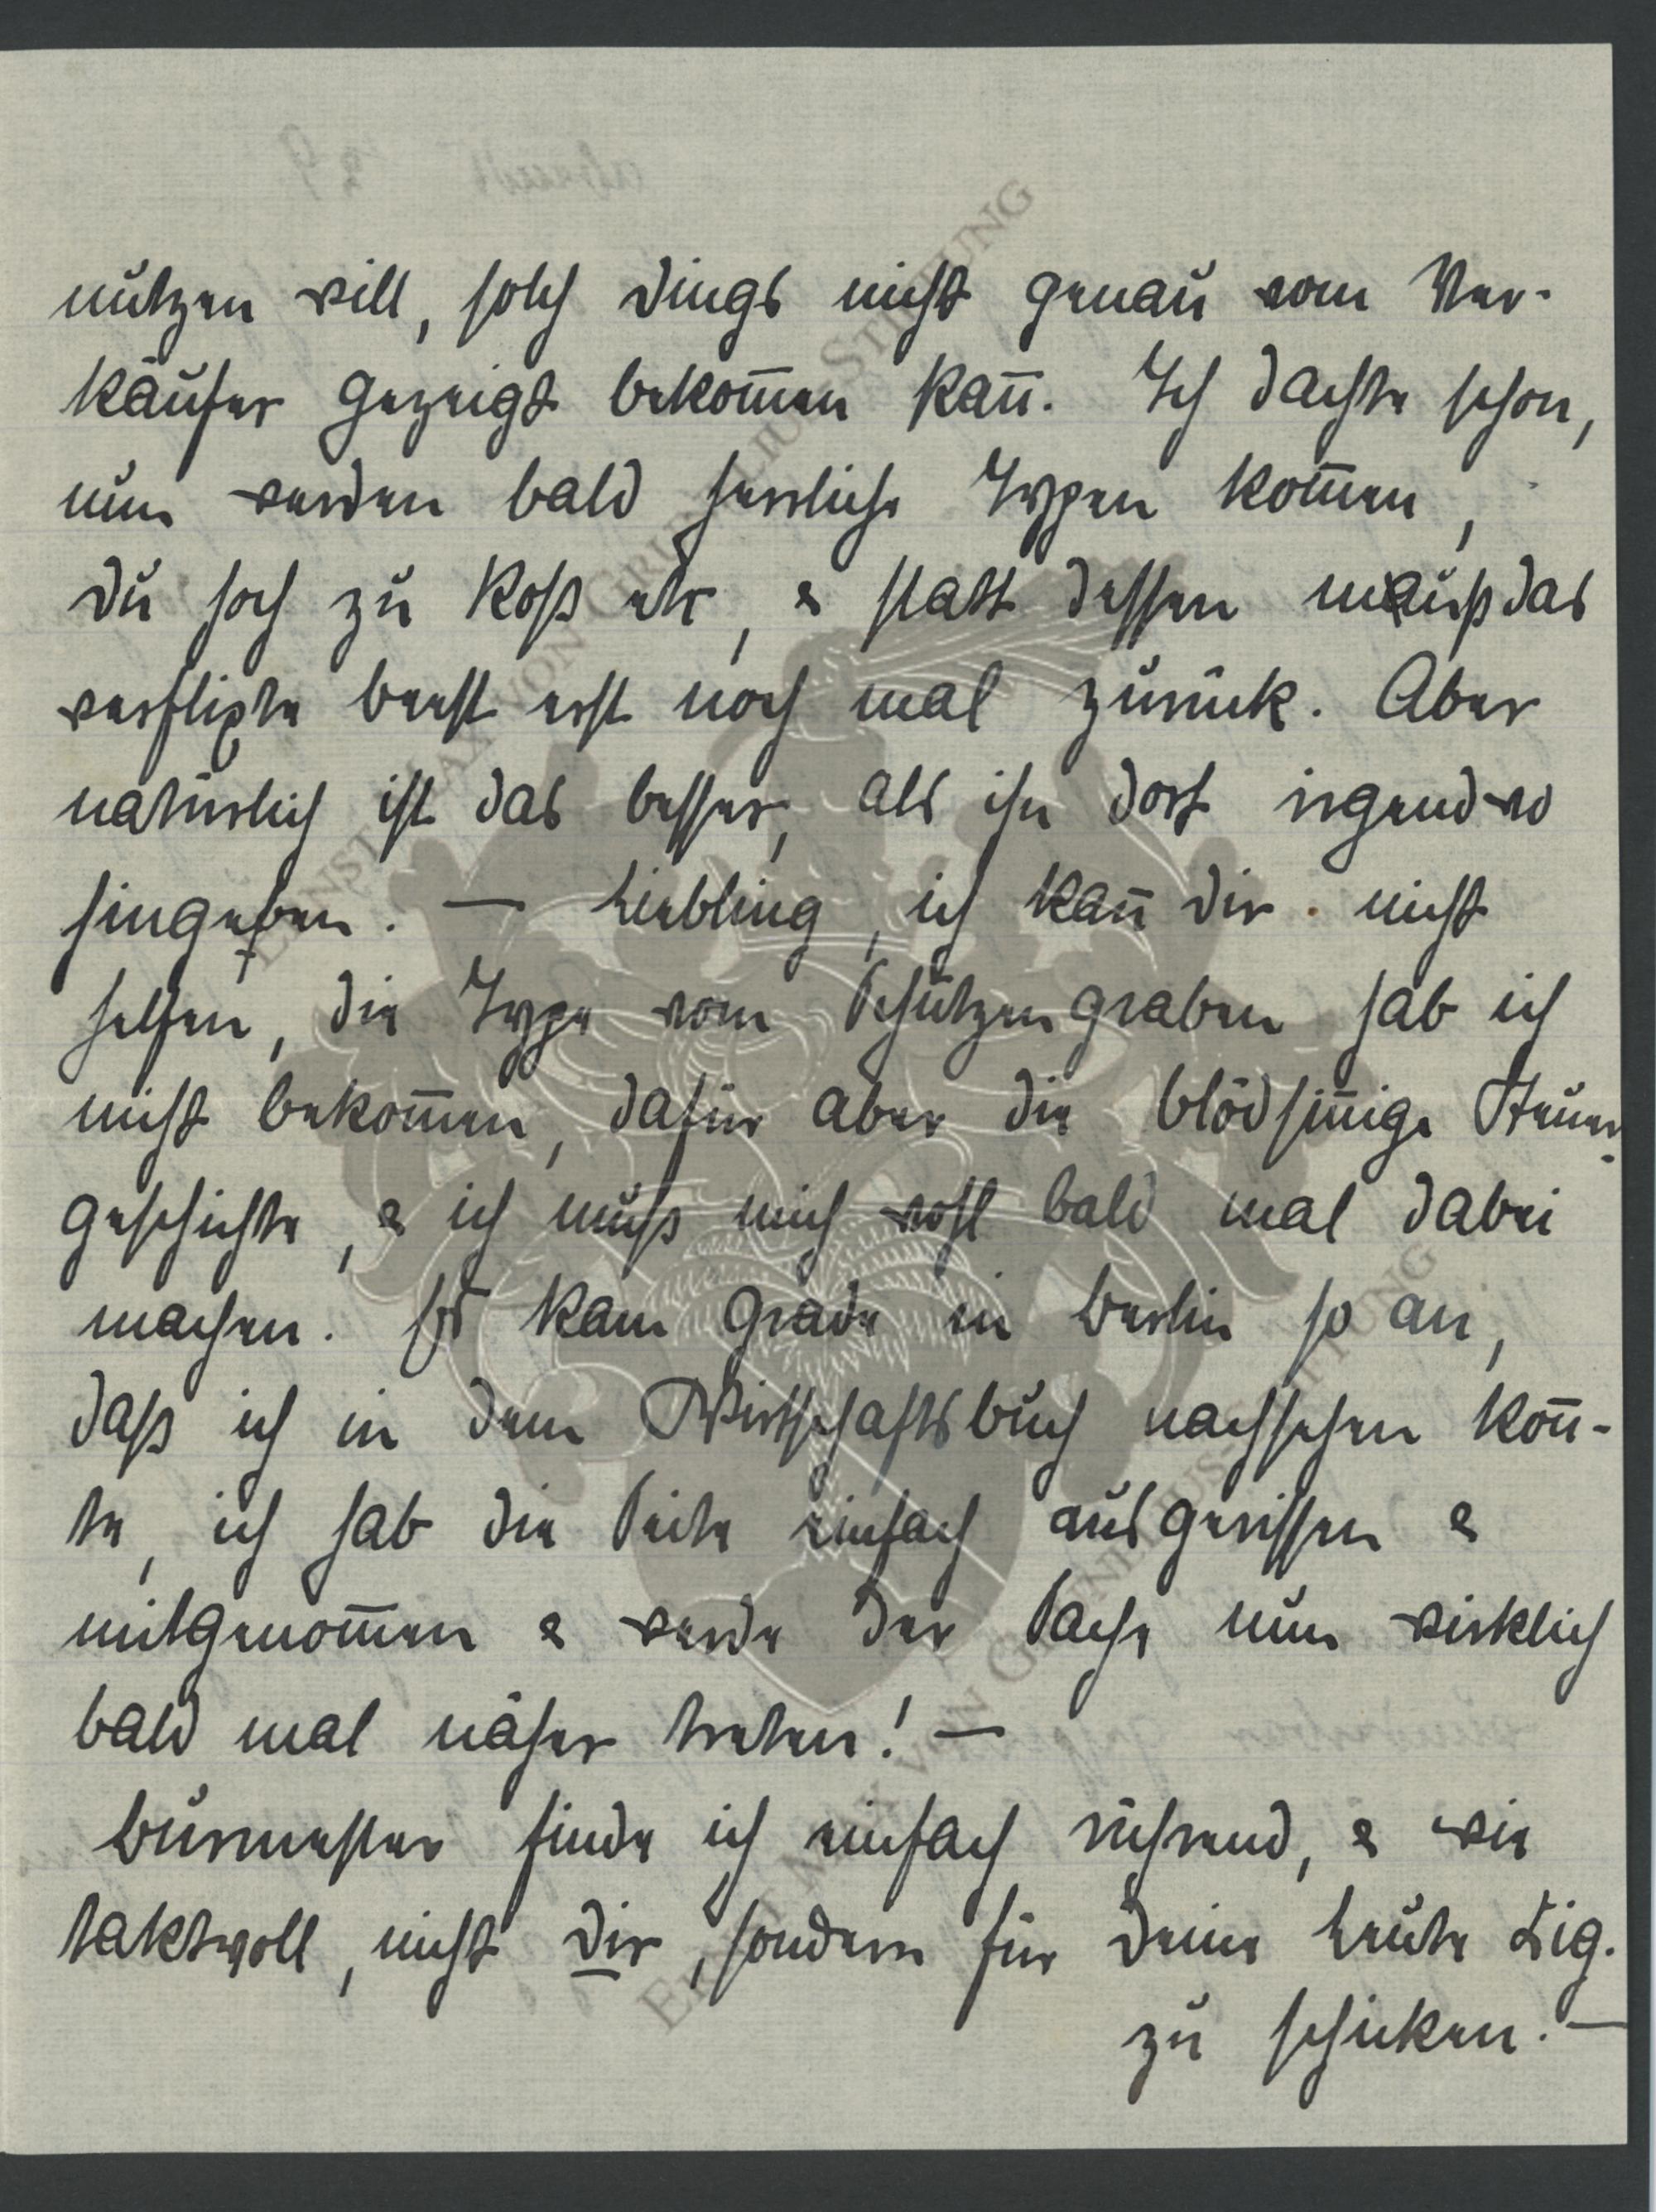 nützen will, solch Dings nicht genau vom Ver-
käufer gezeigt bekom̅en kan̅. Ich dachte schon,
nun werden bald herrliche Typen kom̅en,
Du hoch zu Roß etc, & statt dessen muß das
verflixte Beest erst noch mal zurück. Aber
natürlich ist das besser, als ihn dort irgendwo
hingeben. — Liebling, ich kan̅ Dir nicht
helfen, die Type vom Schützengraben hab ich
nicht bekom̅en, dafür aber die blödsin̅ige Steuer-
geschichte, & ich muß mich wohl bald mal dabei
machen. Es kam grade in Berlin so an,
daß ich in dem Wirtschaftsbuch nachsehen kon̅-
te, ich hab die Seite einfach ausgerissen &
mitgenom̅en & werde der Sache nun wirklich
bald mal näher treten! —
Burmester finde ich einfach rührend, & wie
taktvoll, nicht Dir, sondern für Deine Leute Zig.
zu schicken. —
ERNST MAX VON GRUNELIUS-STIFTUNG
ERNST MAX VON GRUNELIUS-STIFTUNG